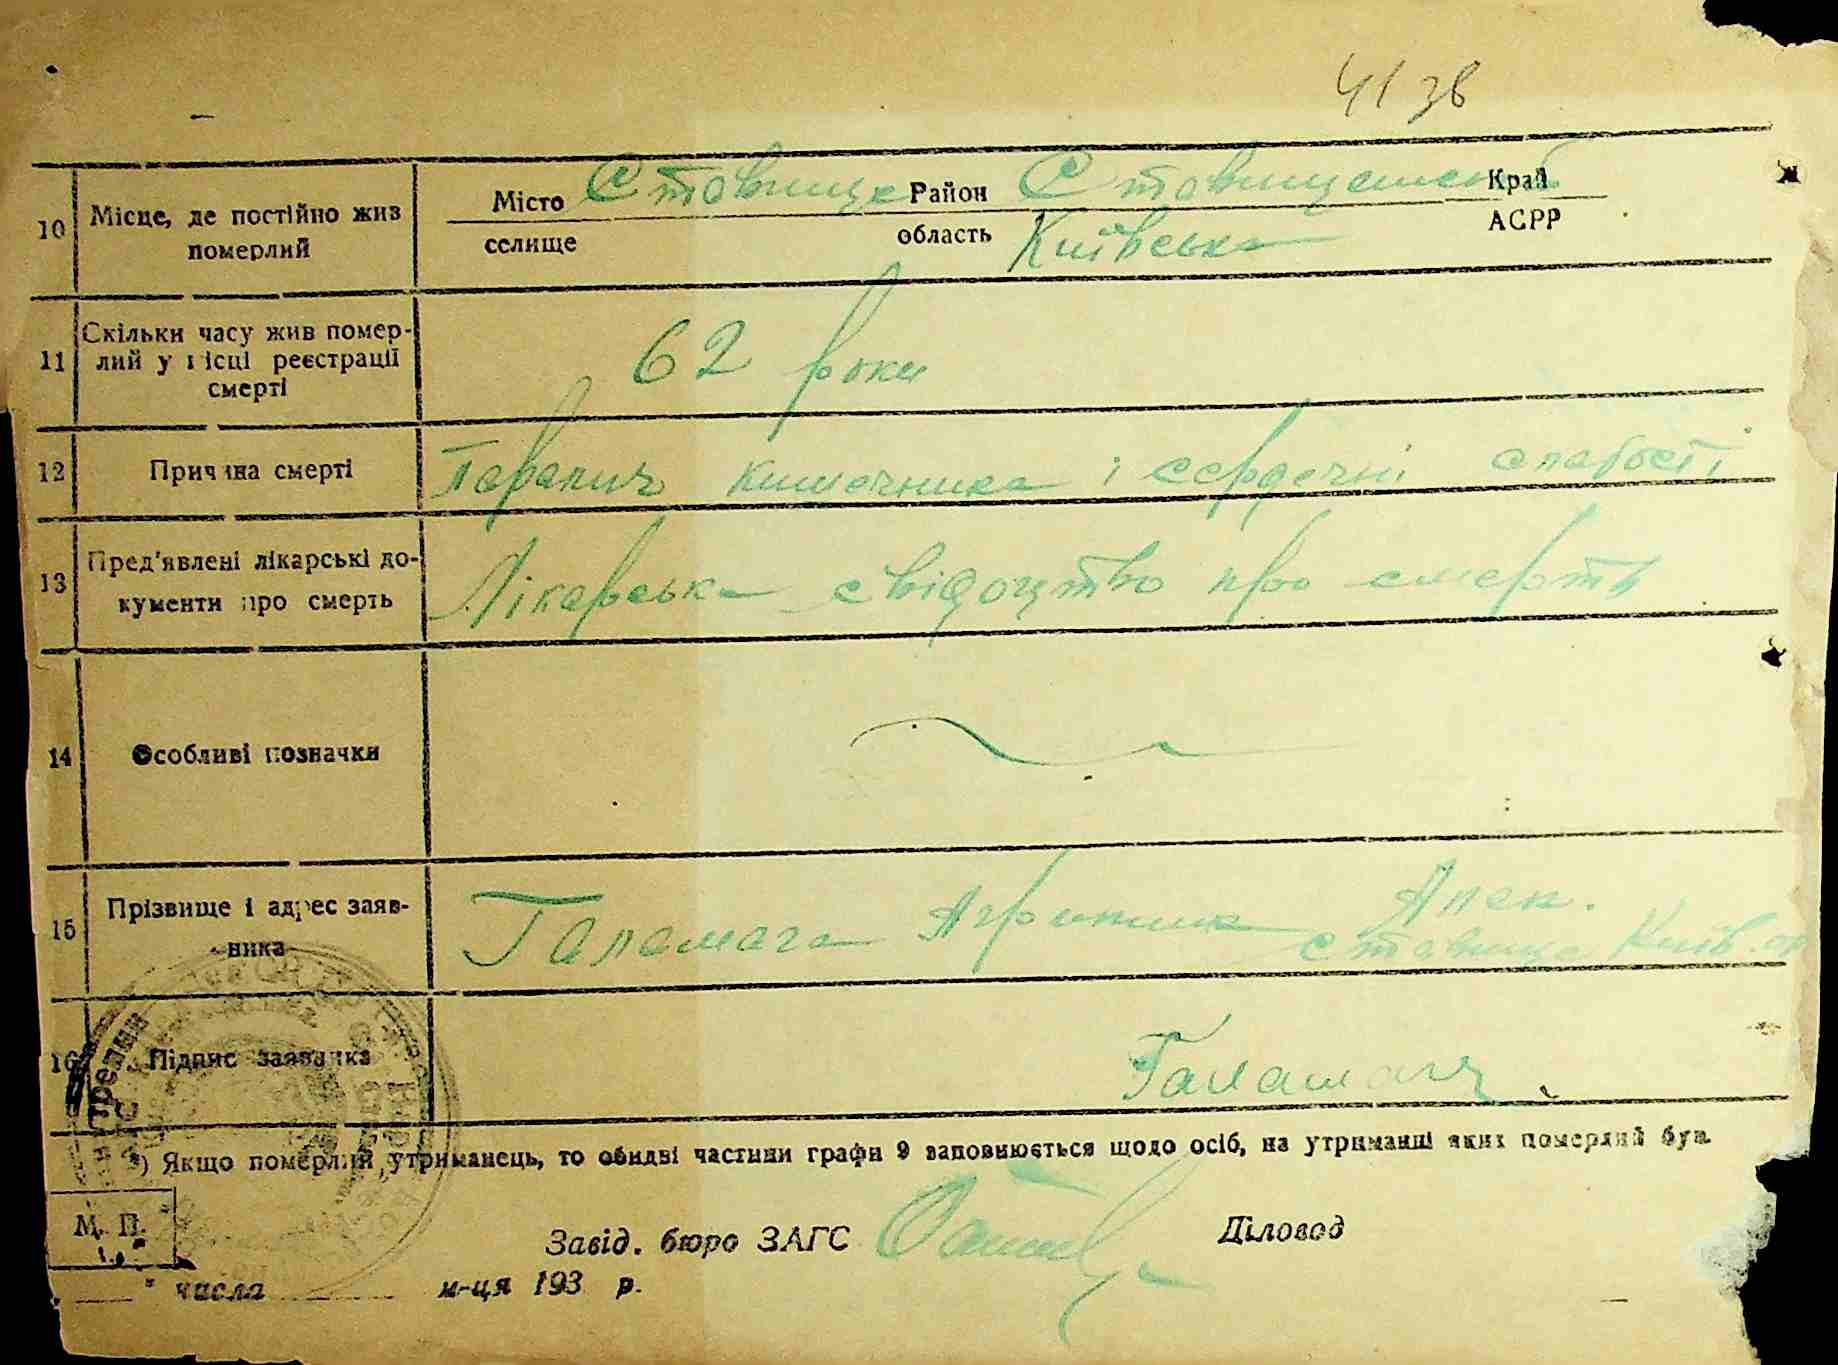 41 38
10 Місце, де постійно жив померлий Місто Ставище Район Ставищенський Край
селище область Київська АСРР
11 Скільки часу жив помер-
лий у місці реєстрації
смерті 62 роки
12 Причина смерті Параліч кишечника і сердечні слабості
13 Пред'явлені лікарські до-
кументи про смерть Лікарська свідоцтво про смерть
14 Особливі позначки
15 Прізвище і адрес заяв-
ника Галамага Алек.
Ставище Київ. об
16 Підпис заявника Галамага
*) Якщо померлий утриманець, то обидві частини графи 9 заповнюється щодо осіб, на утриманні яких померлий був.
М. П.
Завід. бюро ЗАГС Діловод
" числа м-ця 193 р.